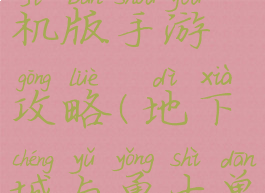 机版手游
gōng lüè dì xià
攻略(地下
chéng yǔ yǒng shì dān
城与勇士单